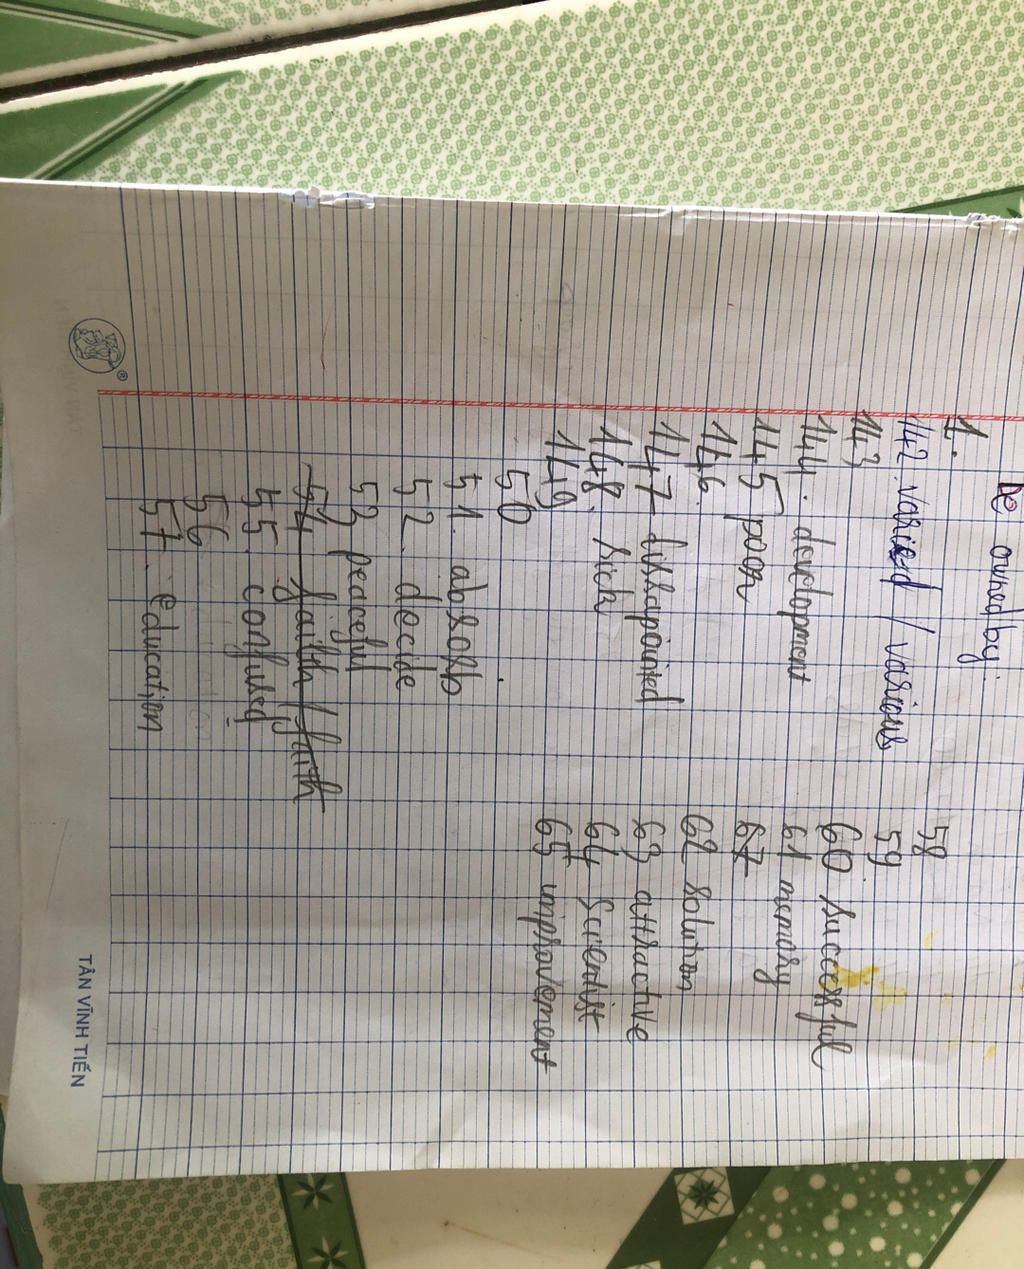 be owned by
1.
142. varied / various
143
144. development
145 poor
146.
147 dissapointed
148. rich
149.
50
51. absorb
52. decide
53 peaceful
54 faith / faith
55. confused
56
57. education
58
59
60 successful
61 memory
67
62 solution
63 attractive
64 scientist
65 improvement
TÂN VĨNH TIẾN
®